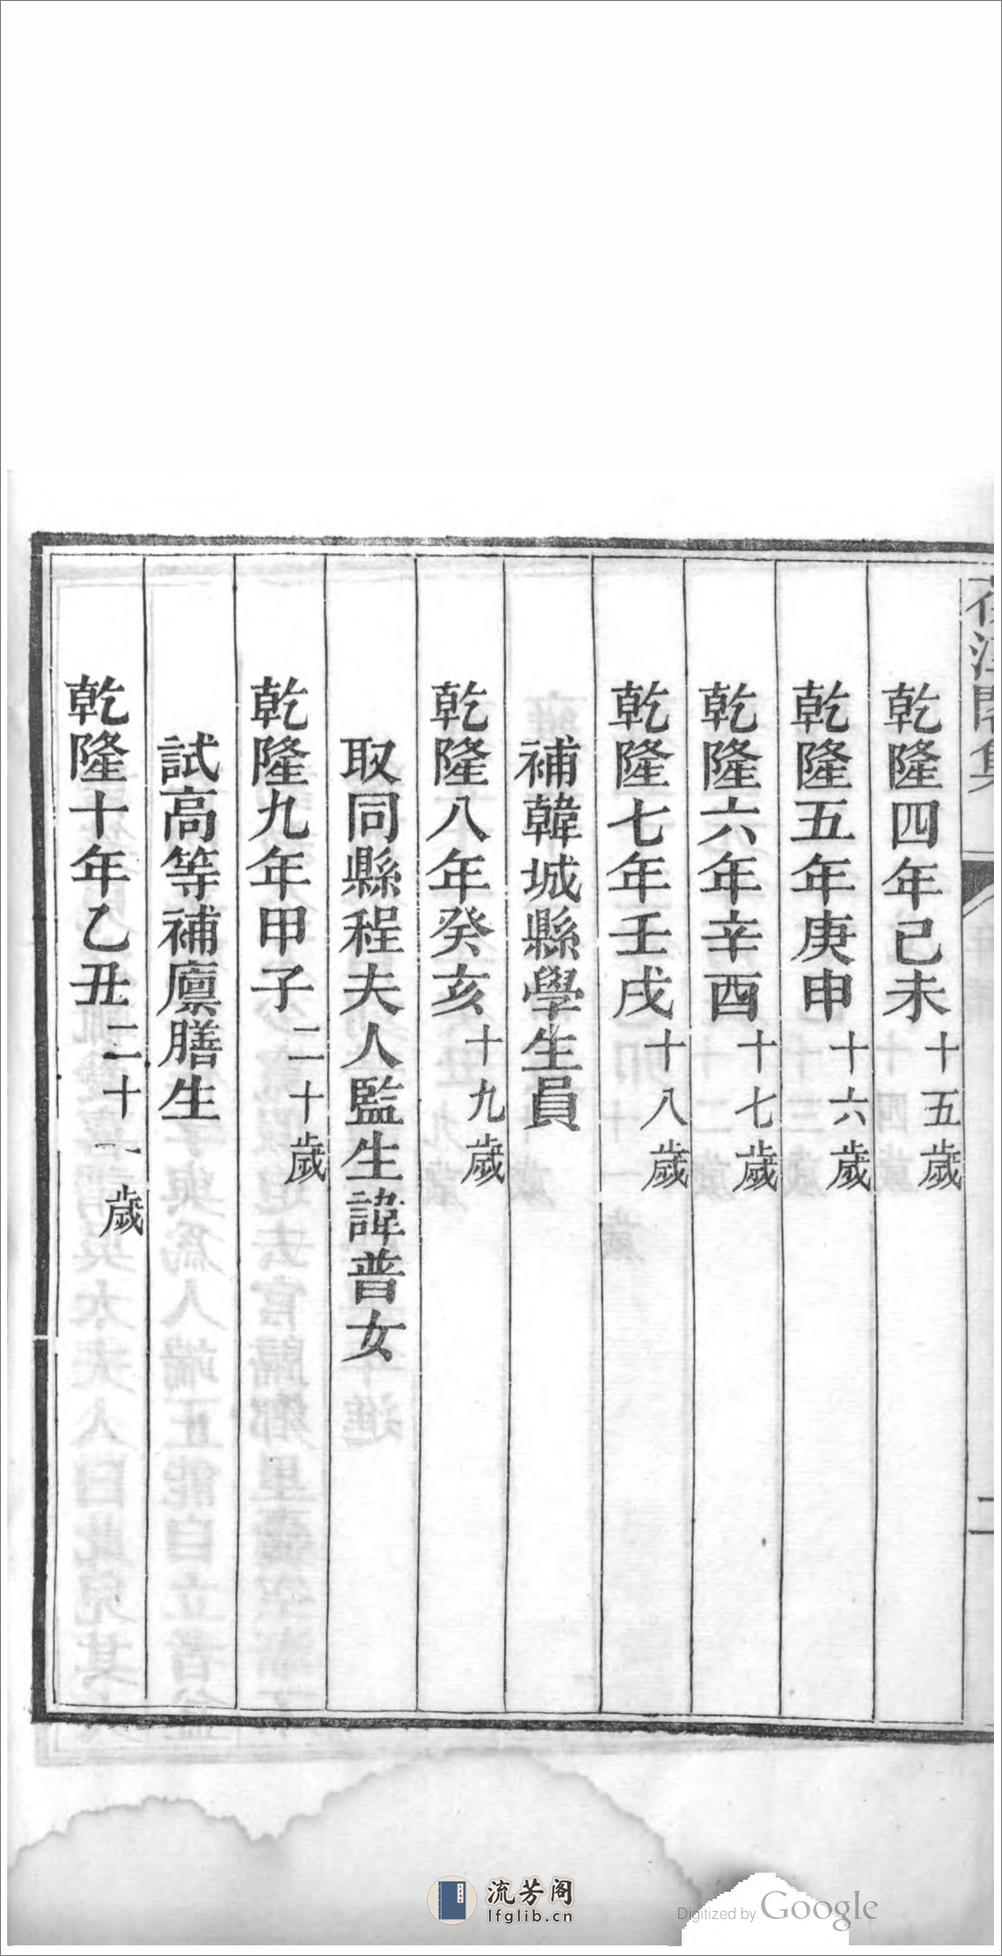 乾隆四年己未十五歲
乾隆五年庚申十六歲
乾隆六年辛酉十七歲
乾隆七年壬戌十八歲
補韓城縣學生員
乾隆八年癸亥十九歲
取同縣程夫人監生諱普女
乾隆九年甲子二十歲
試高等補廩膳生
乾隆十年乙丑二十一歲
二
流芳阁
lfglib.cn
Digitized by Google